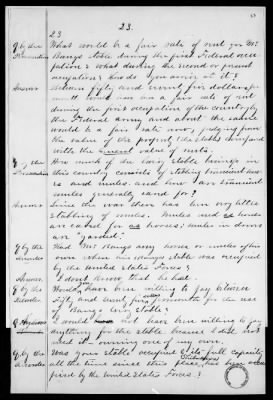 23.
23
Q by the What would be a fair rate of rent for Mr.
Prosecution Bangs stable during the first Federal occu-
pation & what during the second or present
occupation & how do you arrive at it?
Answer Between fifty and seventy five dollars per
month would have been a fair rate of rent
during the first occupation of the country by
the Federal army and about the same
would be a fair rate now, judging from
the value of the property
with the current value of rents.
Q by the How much of the livery stable business in
Prosecution this country consists of stabling transient hors-
es and mules and how are transient
mules generally cared for?
Answer Since the war there has been very little
stabling of mules. Mules and horses
are cared for as horses; mules in droves
are "yarded".
Q by the Had Mr. Bangs any horses or mules of his
claimant own when his livery stable was occupied
by the United States Forces?
Answer I don't know that he had.
Q by the Would you have been willing to pay between
Recorder Fifty and seventy five dollars per month for the use
of Bangs livery stable?
Answer I would not have been willing to pay
anything for the stable because I did not
need it owning one of my own.
Q by the Was your stable occupied to its full capacity
claimant all the time since this place has been occu-
pied by the United States Forces?